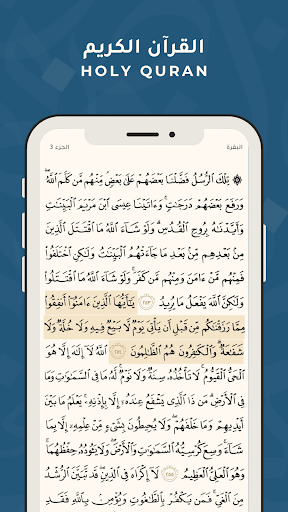 القرآن الكريم
HOLY QURAN
البقرة
الجزء 3
۞ تِلْكَ ٱلرُّسُلُ فَضَّلْنَا بَعْضَهُمْ عَلَىٰ بَعْضٍ مِّنْهُم مَّن كَلَّمَ ٱللَّهُ
وَرَفَعَ بَعْضَهُمْ دَرَجَٰتٍ وَءَاتَيْنَا عِيسَى ٱبْنَ مَرْيَمَ ٱلْبَيِّنَٰتِ
وَأَيَّدْنَٰهُ بِرُوحِ ٱلْقُدُسِ وَلَوْ شَآءَ ٱللَّهُ مَا ٱقْتَتَلَ ٱلَّذِينَ
مِنۢ بَعْدِهِم مِّنۢ بَعْدِ مَا جَآءَتْهُمُ ٱلْبَيِّنَٰتُ وَلَٰكِنِ ٱخْتَلَفُوا۟
فَمِنْهُم مَّنْ ءَامَنَ وَمِنْهُم مَّن كَفَرَ وَلَوْ شَآءَ ٱللَّهُ مَا ٱقْتَتَلُوا۟
وَلَٰكِنَّ ٱللَّهَ يَفْعَلُ مَا يُرِيدُ ٢٥٣ يَٰٓأَيُّهَا ٱلَّذِينَ ءَامَنُوٓا۟ أَنفِقُوا۟
مِمَّا رَزَقْنَٰكُم مِّن قَبْلِ أَن يَأْتِىَ يَوْمٌ لَّا بَيْعٌ فِيهِ وَلَا خُلَّةٌ وَلَا
شَفَٰعَةٌ وَٱلْكَٰفِرُونَ هُمُ ٱلظَّٰلِمُونَ ٢٥٤ ٱللَّهُ لَآ إِلَٰهَ إِلَّا هُوَ
ٱلْحَىُّ ٱلْقَيُّومُ لَا تَأْخُذُهُۥ سِنَةٌ وَلَا نَوْمٌ لَّهُۥ مَا فِى ٱلسَّمَٰوَٰتِ وَمَا
فِى ٱلْأَرْضِ مَن ذَا ٱلَّذِى يَشْفَعُ عِندَهُۥٓ إِلَّا بِإِذْنِهِۦ يَعْلَمُ مَا بَيْنَ
أَيْدِيهِمْ وَمَا خَلْفَهُمْ وَلَا يُحِيطُونَ بِشَىْءٍ مِّنْ عِلْمِهِۦٓ إِلَّا بِمَا
شَآءَ وَسِعَ كُرْسِيُّهُ ٱلسَّمَٰوَٰتِ وَٱلْأَرْضَ وَلَا يَـُٔودُهُۥ حِفْظُهُمَا
وَهُوَ ٱلْعَلِىُّ ٱلْعَظِيمُ ٢٥٥ لَآ إِكْرَاهَ فِى ٱلدِّينِ قَد تَّبَيَّنَ ٱلرُّشْدُ
مِنَ ٱلْغَىِّ فَمَن يَكْفُرْ بِٱلطَّٰغُوتِ وَيُؤْمِنۢ بِٱللَّهِ فَقَدِ